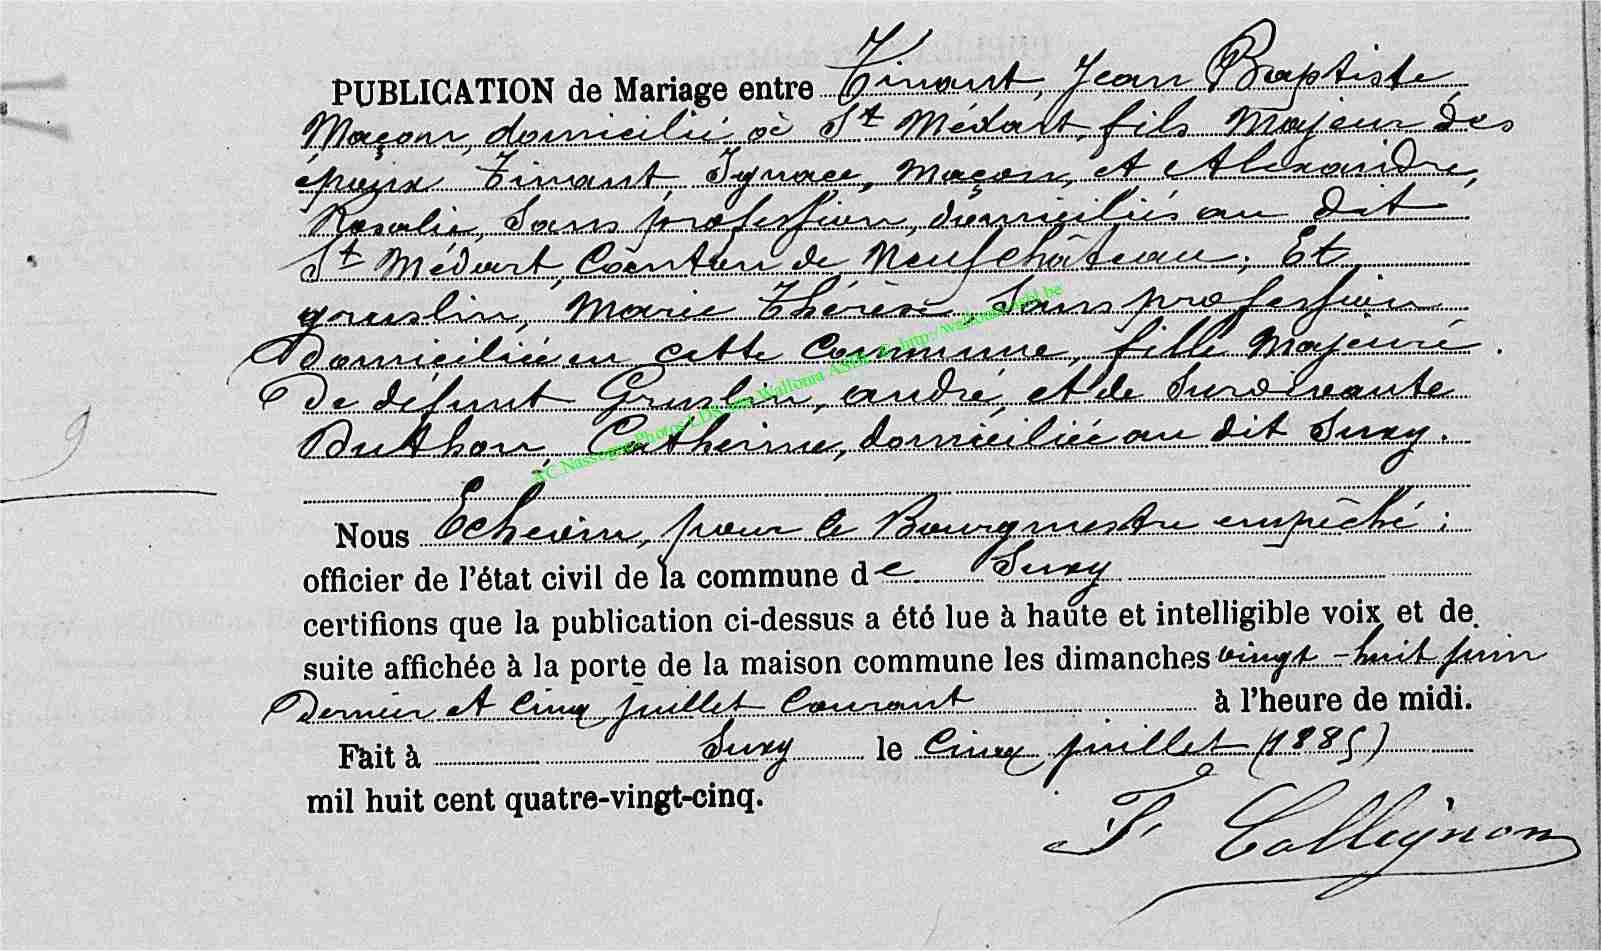 PUBLICATION de Mariage entre Tinant, Jean Baptiste
Maçon, domicilié à St Médart, fils majeur des
époux Tinant, Ignace, maçon, et Alexandre,
Rosalie, sans profession, domiciliés au dit
St Médart, Canton de Neufchâteau; Et
gruslin, Marie Thérèse sans profession
domiciliée en cette commune, fille majeure
de défunt Gruslin, andré, et de survivante
Duthon, Catherine, domiciliée au dit Suxy.
Nous Echevin, pour le Bourgmestre empêché;
officier de l'état civil de la commune de Suxy
certifions que la publication ci-dessus a été lue à haute et intelligible voix et de
suite affichée à la porte de la maison commune les dimanches vingt-huit juin
dernier et cinq juillet courant à l'heure de midi.
Fait à Suxy le cinq juillet (1885)
mil huit cent quatre-vingt-cinq.
F. Collignon
9
http://walloniaasbl.be